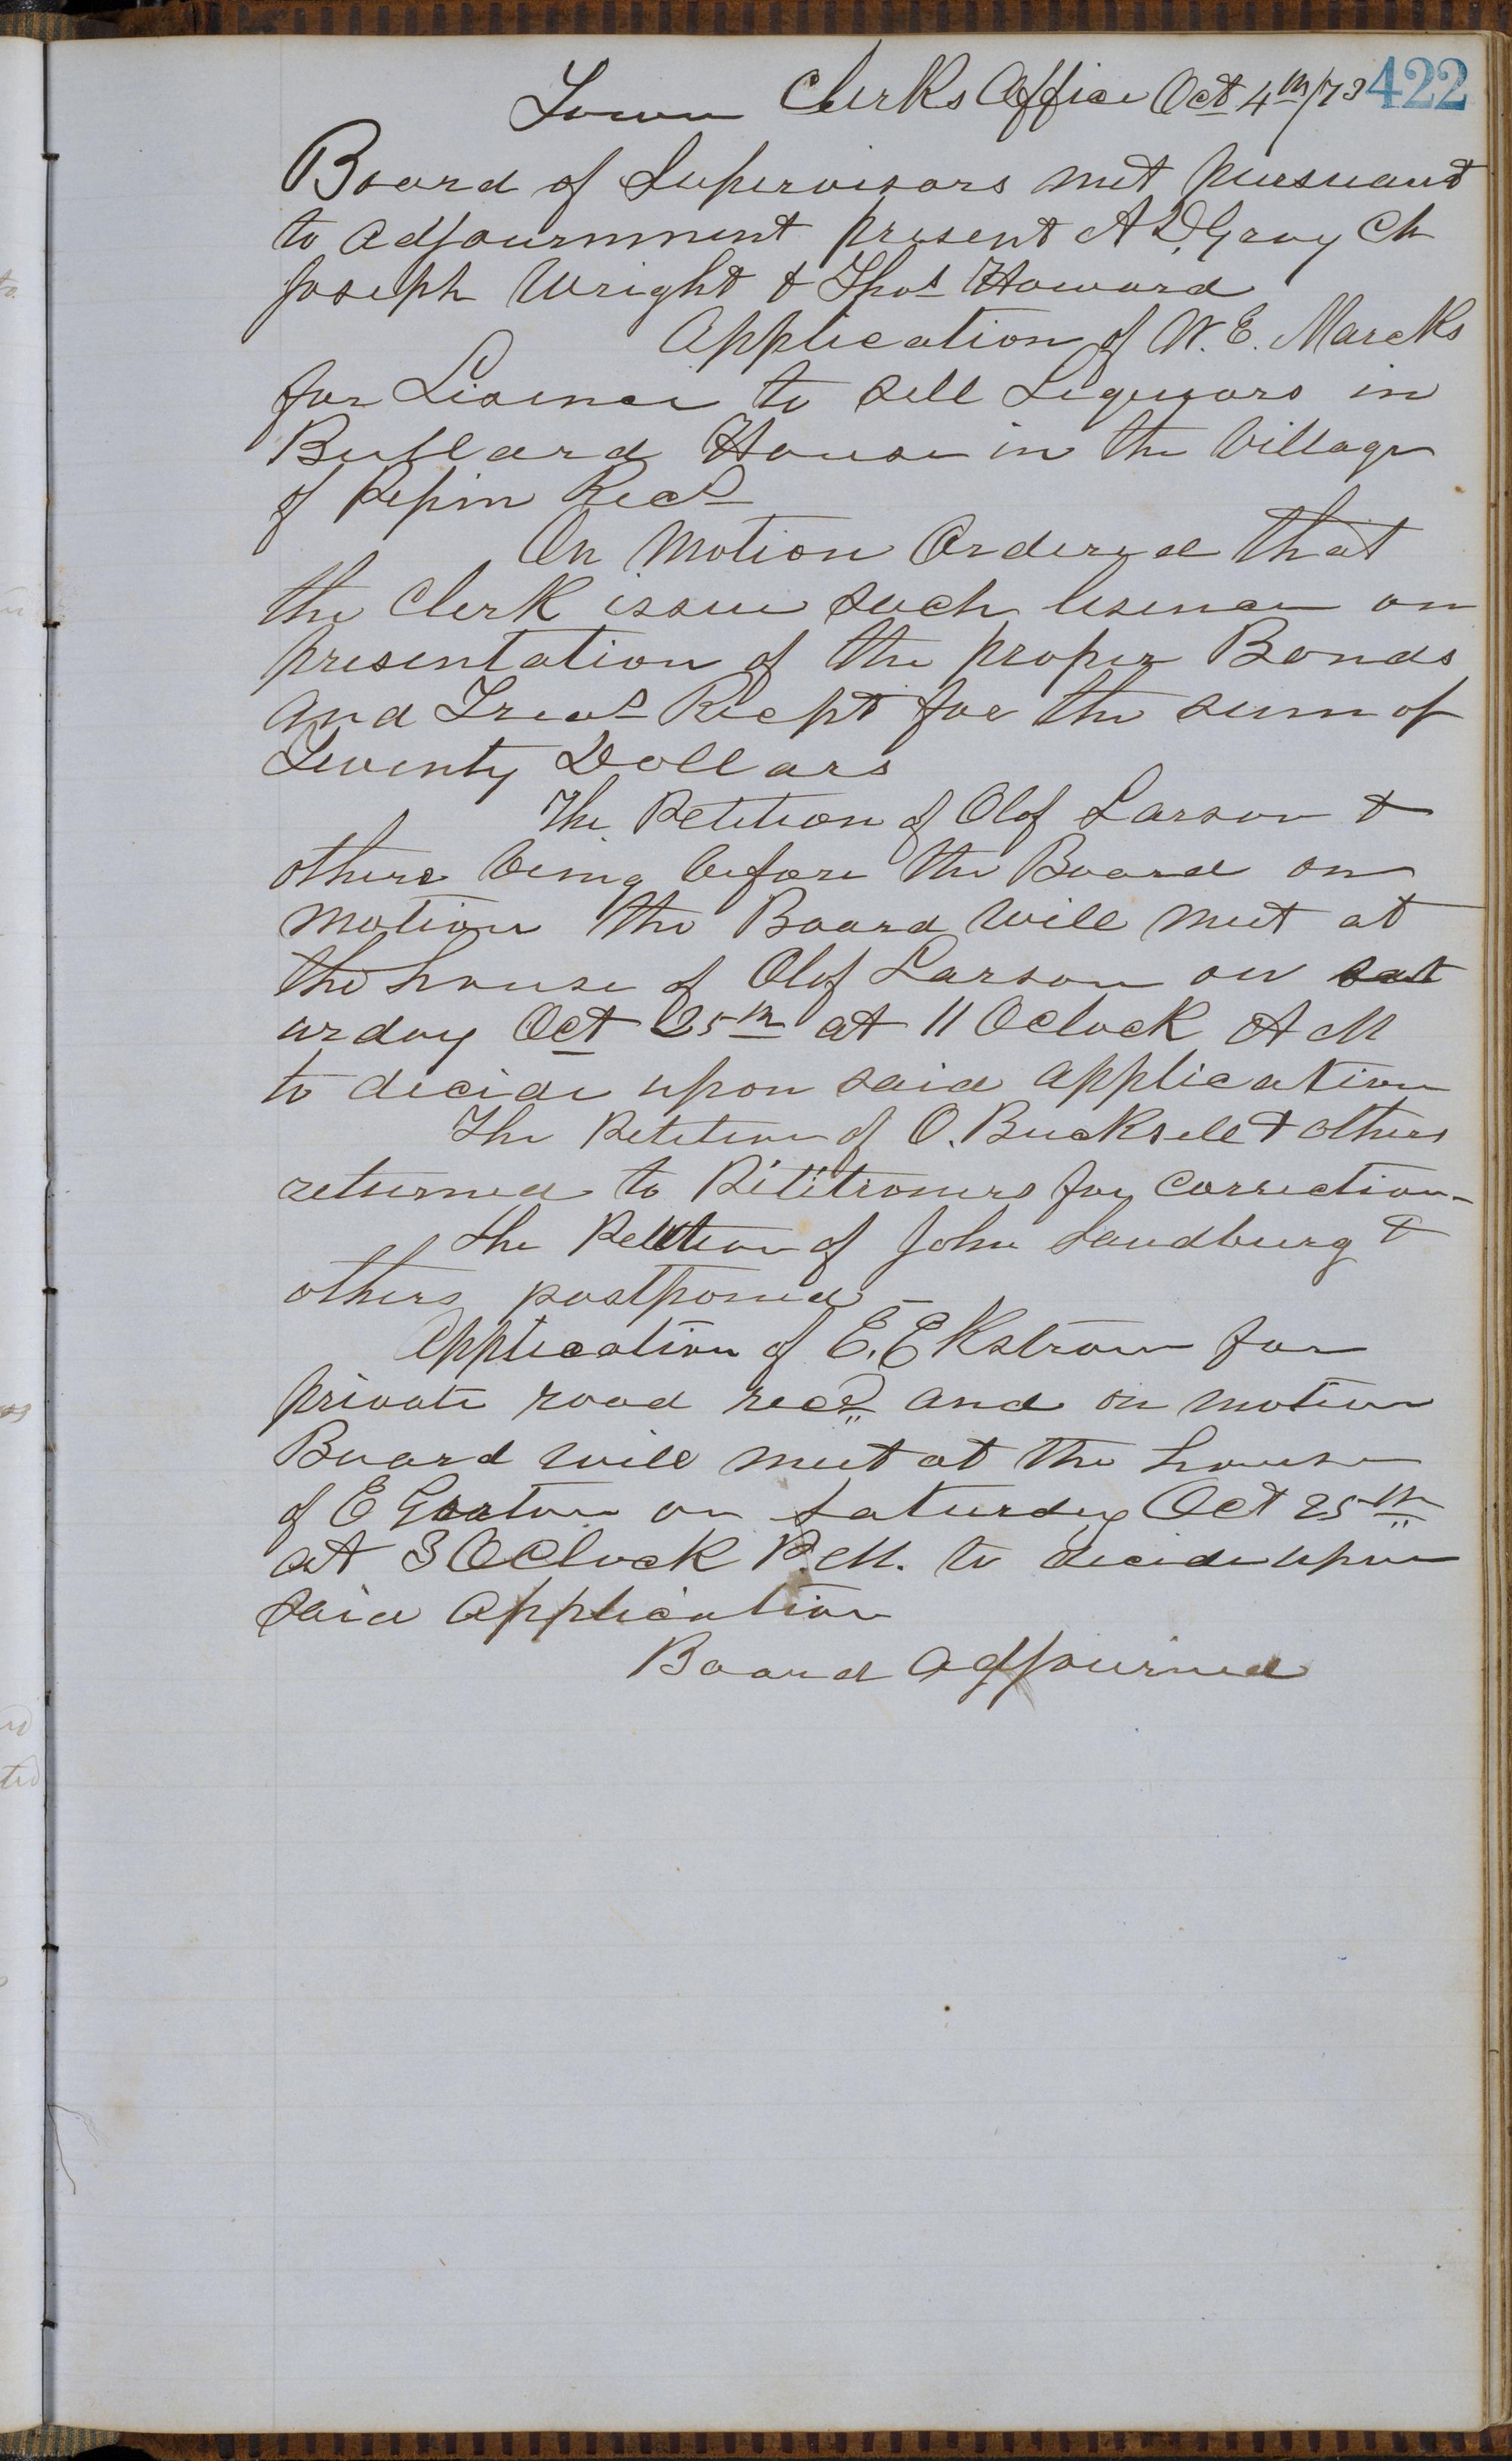 422
Town Clerks Office Oct 4th/73
Board of Supervisors met pursuant
to adjournment present A D, Gray Ch
Joseph Wright & Thos Howard
Application of W. E. Marcks
for Lisence to sell Liquors in
Bullard House in the Village
of Pepin Recd
On Motion Ordered that
the Clerk issue such lisence on
presentation of the proper Bonds
and Treas Recpt for the sum of
Twenty Dollars
The Petition of Olof Larson &
others being before the Board on
motion the Board will meet at
the house of Olof Larson on Sat
urday Oct 25th at 11 Oclock A M
to decide upon said application
The Petition of O. Bucksell & others
returned to Pititioners for correction-
the Petition of John Sandburg &
others postponed -
Application of E. Ekstrom for
private road recd and on motion
Board will meet at the house
of E on Saturday Oct 25th
at 3 Oclock P.M. to decide upon
said application
Board adjourned